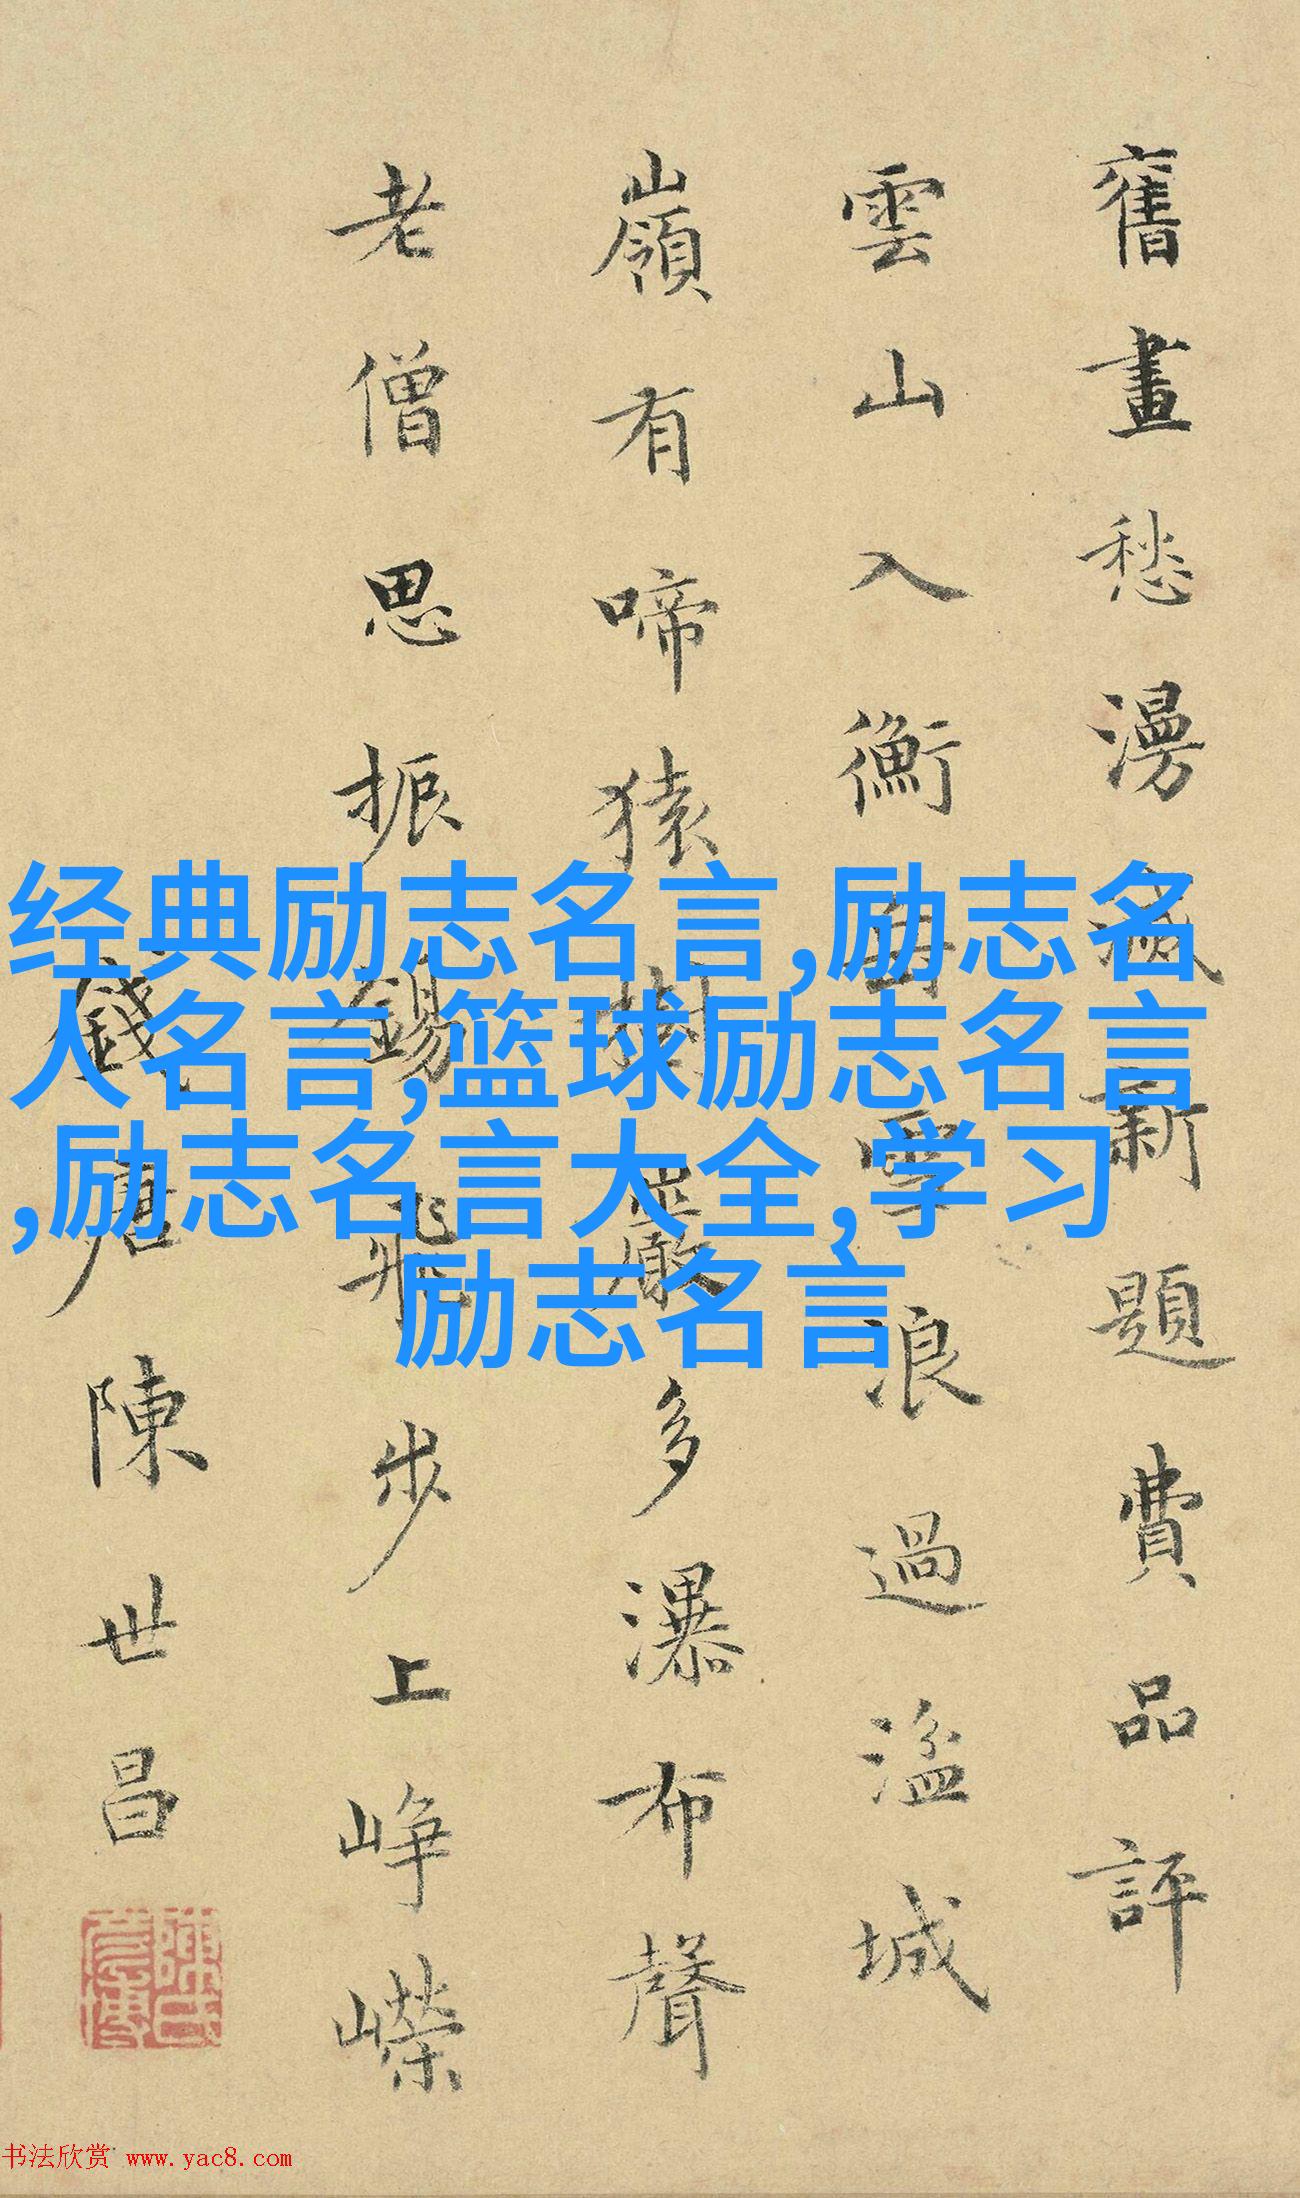 舊畫愁漫滅新題費品評
雲山入衡岳雪浪過湓城
嶺有啼猿樹巖多瀑布聲
老僧思振錫飛步上崢嶸
錢唐陳世昌
经典励志名言,励志名
人名言,篮球励志名言
,励志名言大全,学习
励志名言
书法欣赏 www.yac8.com